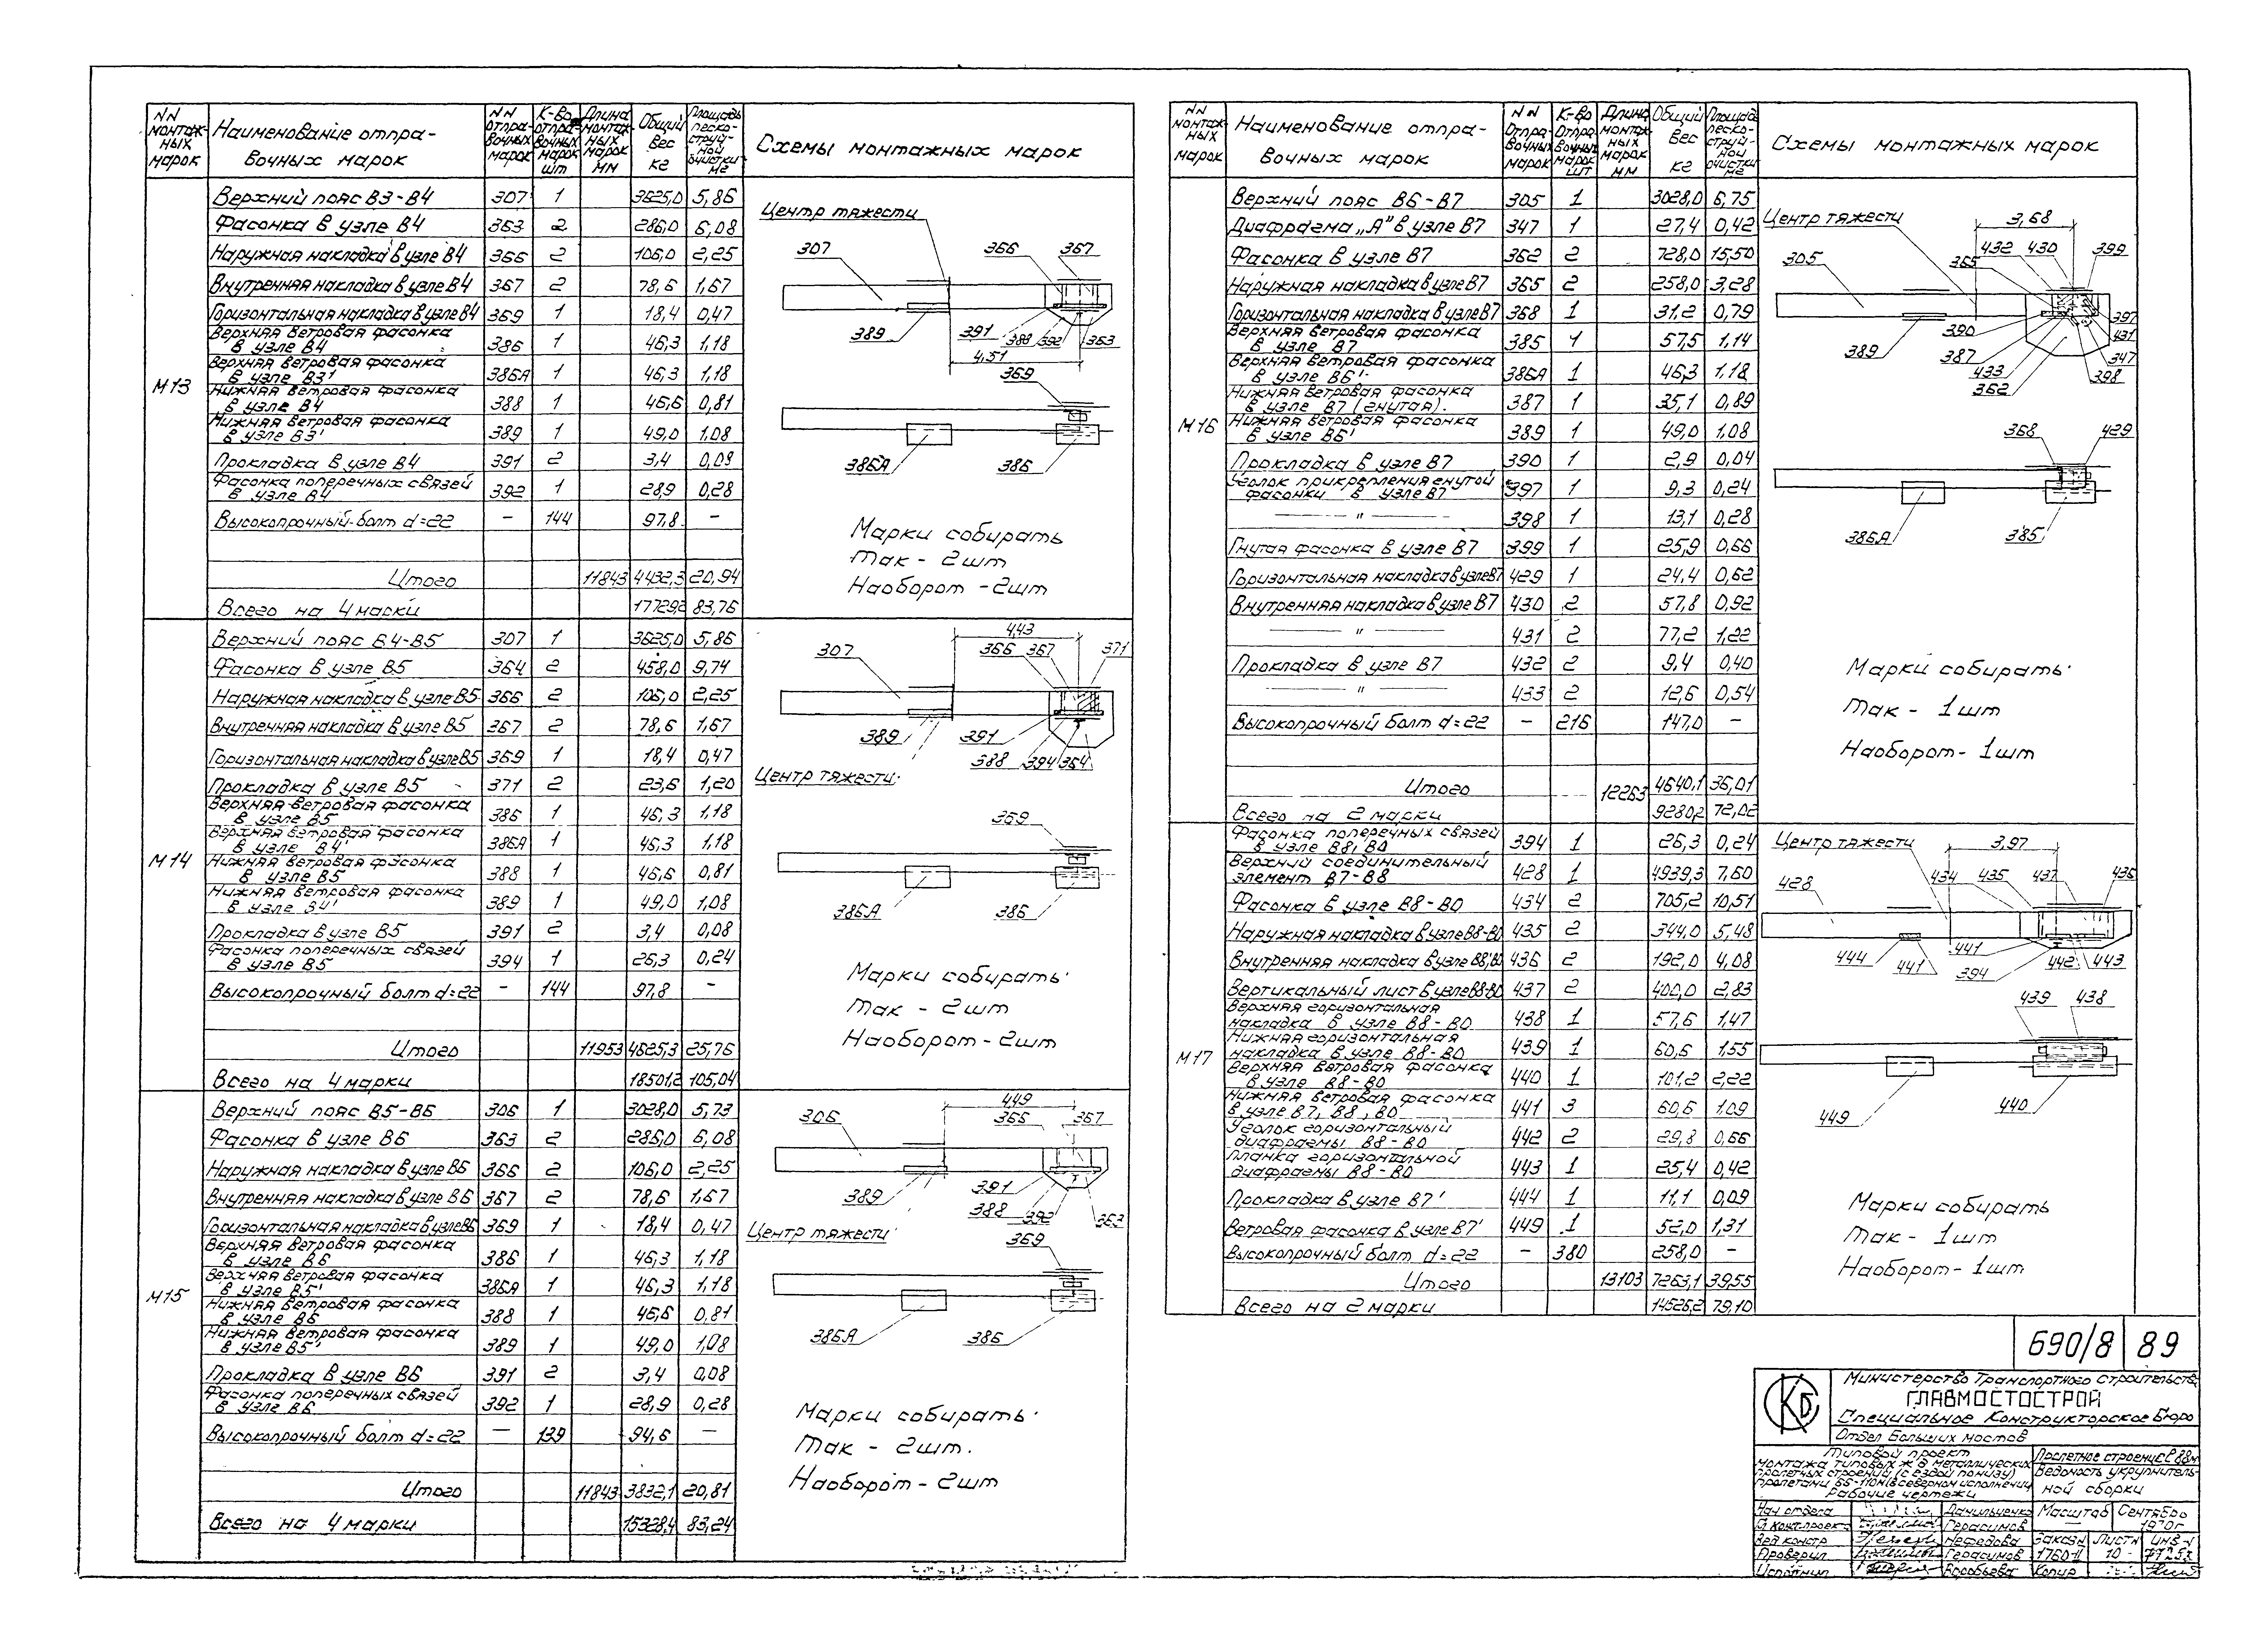 NN монтажных марок | Наименование отправочных марок | NN отправочных марок | К-во отправочных марок шт | Длина монтажных марок мм | Общий вес кг | Площадь пескоструйной очистки м2 | Схемы монтажных марок
М13
Верхний пояс В3-В4 307 1 3625,0 5,86
Фасонка в узле В4 363 2 286,0 6,08
Наружная накладка в узле В4 366 2 106,0 2,25
Внутренняя накладка в узле В4 367 2 78,6 1,67
Горизонтальная накладка в узле В4 369 1 18,4 0,47
Верхняя ветровая фасонка в узле В4 386 1 46,3 1,18
Верхняя ветровая фасонка в узле В3' 386А 1 46,3 1,18
Нижняя ветровая фасонка в узле В4 388 1 46,6 0,81
Нижняя ветровая фасонка в узле В3' 389 1 49,0 1,08
Прокладка в узле В4 391 2 3,4 0,08
Фасонка поперечных связей в узле В4 392 1 28,9 0,28
Высокопрочный болт d=22 – 144 97,8 –
Итого 11843 4432,3 20,94
Всего на 4 марки 17729,2 83,76
Центр тяжести
307 366 367
389 391 388 392 363
4,51
369
386А 386
Марки собирать
Так - 2шт
Наоборот - 2шт
М14
Верхний пояс В4-В5 307 1 3625,0 5,86
Фасонка в узле В5 364 2 458,0 9,74
Наружная накладка в узле В5 366 2 106,0 2,25
Внутренняя накладка в узле В5 367 2 78,6 1,67
Горизонтальная накладка в узле В5 369 1 18,4 0,47
Прокладка в узле В5 371 2 23,6 1,20
Верхняя ветровая фасонка в узле В5 386 1 46,3 1,18
Верхняя ветровая фасонка в узле В4' 386А 1 46,3 1,18
Нижняя ветровая фасонка в узле В5 388 1 46,6 0,81
Нижняя ветровая фасонка в узле В4' 389 1 49,0 1,08
Прокладка в узле В5 391 2 3,4 0,08
Фасонка поперечных связей в узле В5 394 1 26,3 0,24
Высокопрочный болт d=22 – 144 97,8 –
Итого 11953 4625,3 25,76
Всего на 4 марки 18501,2 105,04
4,43
307 366 367 371
389 391
388 394 364
Центр тяжести
369
386А 386
Марки собирать
Так - 2шт
Наоборот - 2шт
М15
Верхний пояс В5-В6 306 1 3028,0 5,73
Фасонка в узле В6 363 2 286,0 6,08
Наружная накладка в узле В6 366 2 106,0 2,25
Внутренняя накладка в узле В6 367 2 78,6 1,67
Горизонтальная накладка в узле В6 369 1 18,4 0,47
Верхняя ветровая фасонка в узле В6 386 1 46,3 1,18
Верхняя ветровая фасонка в узле В5' 386А 1 46,3 1,18
Нижняя ветровая фасонка в узле В6 388 1 46,6 0,81
Нижняя ветровая фасонка в узле В5' 389 1 49,0 1,08
Прокладка в узле В6 391 2 3,4 0,08
Фасонка поперечных связей в узле В6 392 1 28,9 0,28
Высокопрочный болт d=22 – 139 94,6 –
Итого 11843 3832,1 20,81
Всего на 4 марки 15328,4 83,24
449
306 366 367
389 391
388 392 363
Центр тяжести
369
386А 386
Марки собирать
Так - 2шт.
Наоборот - 2шт
NN монтажных марок | Наименование отправочных марок | NN отправочных марок | К-во отправочных марок шт | Длина монтажных марок мм | Общий вес кг | Площадь пескоструйной очистки м2 | Схемы монтажных марок
М16
Верхний пояс В6-В7 305 1 3028,0 6,75
Диафрагма „А" в узле В7 347 1 27,4 0,42
Фасонка в узле В7 362 2 728,0 15,50
Наружная накладка в узле В7 365 2 258,0 3,28
Горизонтальная накладка в узле В7 368 1 31,2 0,79
Верхняя ветровая фасонка в узле В7 385 1 57,5 1,14
Верхняя ветровая фасонка в узле В6' 386А 1 46,3 1,18
Нижняя ветровая фасонка в узле В7 (гнутая). 387 1 35,1 0,89
Нижняя ветровая фасонка в узле В6' 389 1 49,0 1,08
Прокладка в узле В7 390 1 2,9 0,04
Уголок прикрепления гнутой фасонки в узле В7 397 1 9,3 0,24
— " — 398 1 13,1 0,28
Гнутая фасонка в узле В7 399 1 25,9 0,66
Горизонтальная накладка в узле В7 429 1 24,4 0,62
Внутренняя накладка в узле В7 430 2 57,8 0,92
— " — 431 2 77,2 1,22
Прокладка в узле В7 432 2 9,4 0,40
— " — 433 2 12,6 0,54
Высокопрочный болт d=22 – 216 147,0 –
Итого 12263 4640,1 36,01
Всего на 2 марки 9280,2 72,02
Центр тяжести
3,68
305 365 432 430 399
389 390 387 433 362 397 431 347 398
368 429
386А 385
Марки собирать
Так - 1шт
Наоборот - 1шт
М17
Фасонка поперечных связей в узле В8; В0 394 1 26,3 0,24
Верхний соединительный элемент В7-В8 428 1 4939,3 7,60
Фасонка в узле В8-В0 434 2 705,2 10,51
Наружная накладка в узле В8-В0 435 2 344,0 5,48
Внутренняя накладка в узле В8,В0 436 2 192,0 4,08
Вертикальный лист в узле В8-В0 437 2 400,0 2,83
Верхняя горизонтальная накладка в узле В8-В0 438 1 57,6 1,47
Нижняя горизонтальная накладка в узле В8-В0 439 1 60,6 1,55
Верхняя ветровая фасонка в узле В8-В0 440 1 101,2 2,22
Нижняя ветровая фасонка в узле В7, В8, В0 441 3 60,6 1,09
Уголок горизонтальный диафрагмы В8-В0 442 2 29,8 0,66
Планка горизонтальной диафрагмы В8-В0 443 1 25,4 0,42
Прокладка в узле В7' 444 1 11,1 0,09
Ветровая фасонка в узле В7' 449 1 52,0 1,31
Высокопрочный болт d=22 – 380 258,0 –
Итого 13103 7263,1 39,55
Всего на 2 марки 14526,2 79,10
Центр тяжести
3,97
428 434 435 437 436
444 441 441 394 442 443
439 438
449 440
Марки собирать
Так - 1шт
Наоборот - 1шт
690/8 89
СКБ
Министерство Транспортного строительства
ГЛАВМОСТОСТРОЙ
Специальное Конструкторское Бюро
Отдел Больших мостов
Типовой проект
монтажа типовых ж.д. металлических
пролетных строений (с ездой понизу)
пролетами 55-110м (в северном исполнении)
Рабочие чертежи
Пролетное строение ℓ 88м
Ведомость укрупнительной сборки
Нач отдела Данильченко Масштаб – Сентябрь 1970г
Гл. конс. проекта Герасимов
Вед констр Нефедова Заказ N Листн инв N
Проверил Герасимов 1760-II 10
Исполнил Воробьева Копир